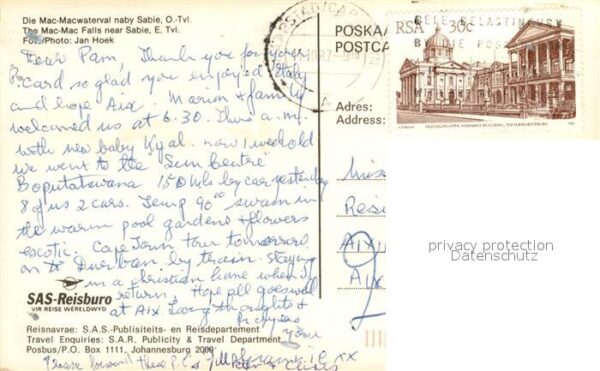 Die Mac-Macwaterval naby Sabie, O.-Tvl.
The Mac-Mac Falls near Sabie, E. Tvl.
Foto/Photo: Jan Hoek
Dear Pam, Thank you for your
P.card so glad you enjoyed Italy
and hope Aix. Marion & family
welcomed us at 6.30. Third a.m.
with new baby Kyal. now 1 week old
we went to the Sun Centre
Boputatswana 150 mls by car yesterday
8 of us 2 cars. Temp 90° swam in
the warm pool gardens & flowers
exotic. Cape Town tour tomorrow
on to Durban by train. staying
in a christian home when I
return. Hope all goes well
at Aix. Loving thoughts &
prayers
your
SAS-Reisburo
VIR REISE WÊRELDWYD
Reisnavrae: S.A.S.-Publisiteits- en Reisdepartement
Travel Enquiries: S.A.R. Publicity & Travel Department
Posbus/P.O. Box 1111, Johannesburg 2000
Please forward these P.C.s
xx
POSKAA
POSTCA
Adres:
Address:
Miss
Resi
Aix
Aix
RSA 30c
privacy protection
Datenschutz